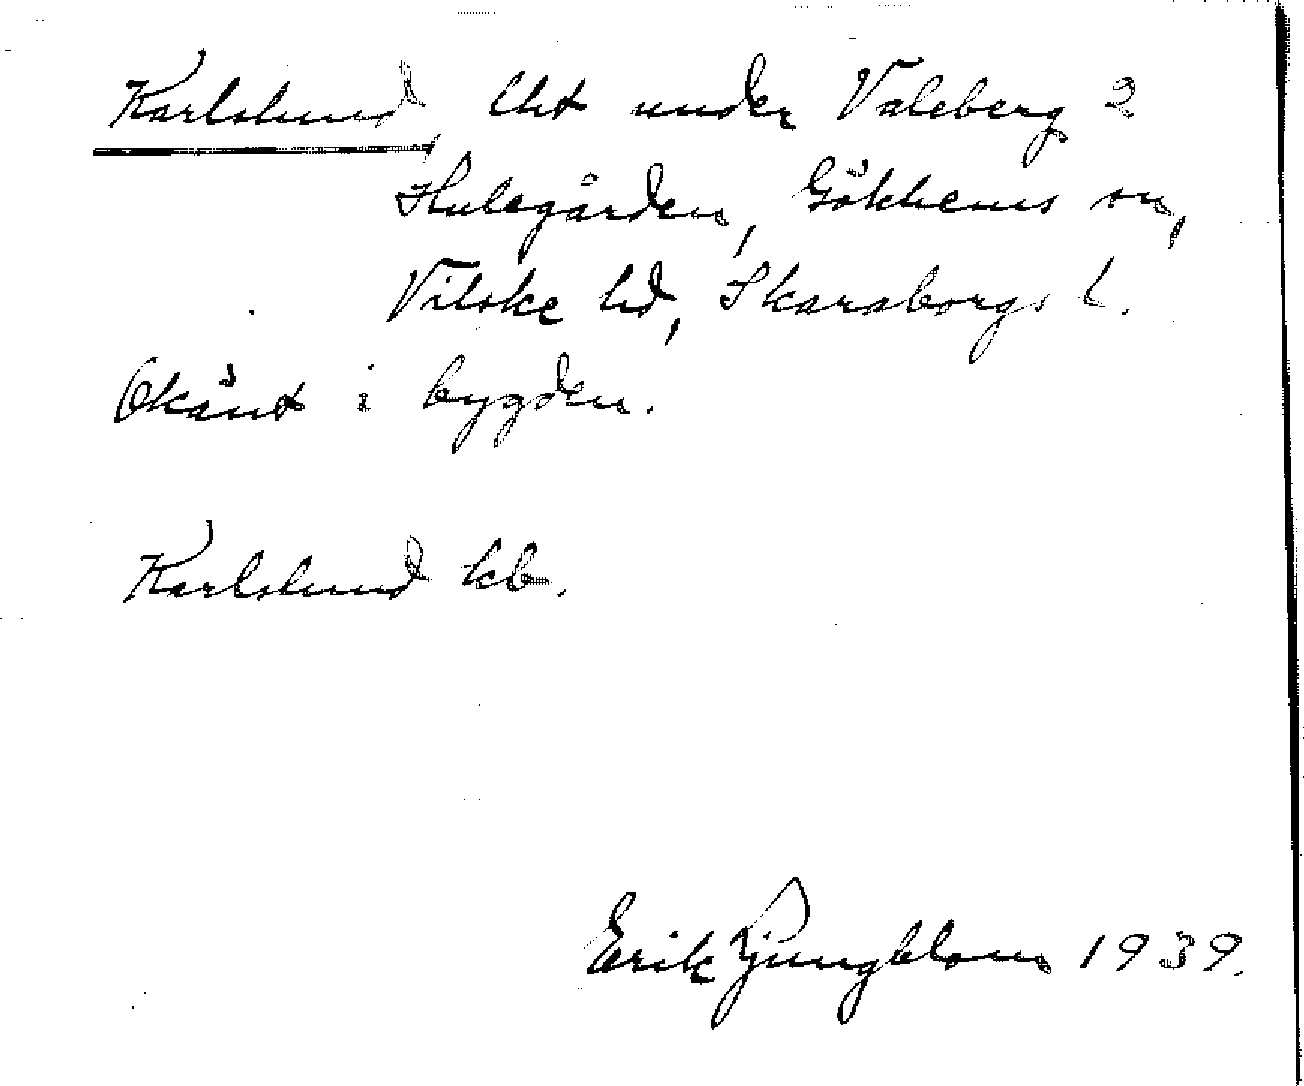 Karlslund, lht under Valeberg 2
Hulegården, Gökhems sn,
Vilske hd, Skaraborgs l.
Okänt i bygden.
Karlslund kb.
Erik Ljungblom 1939.